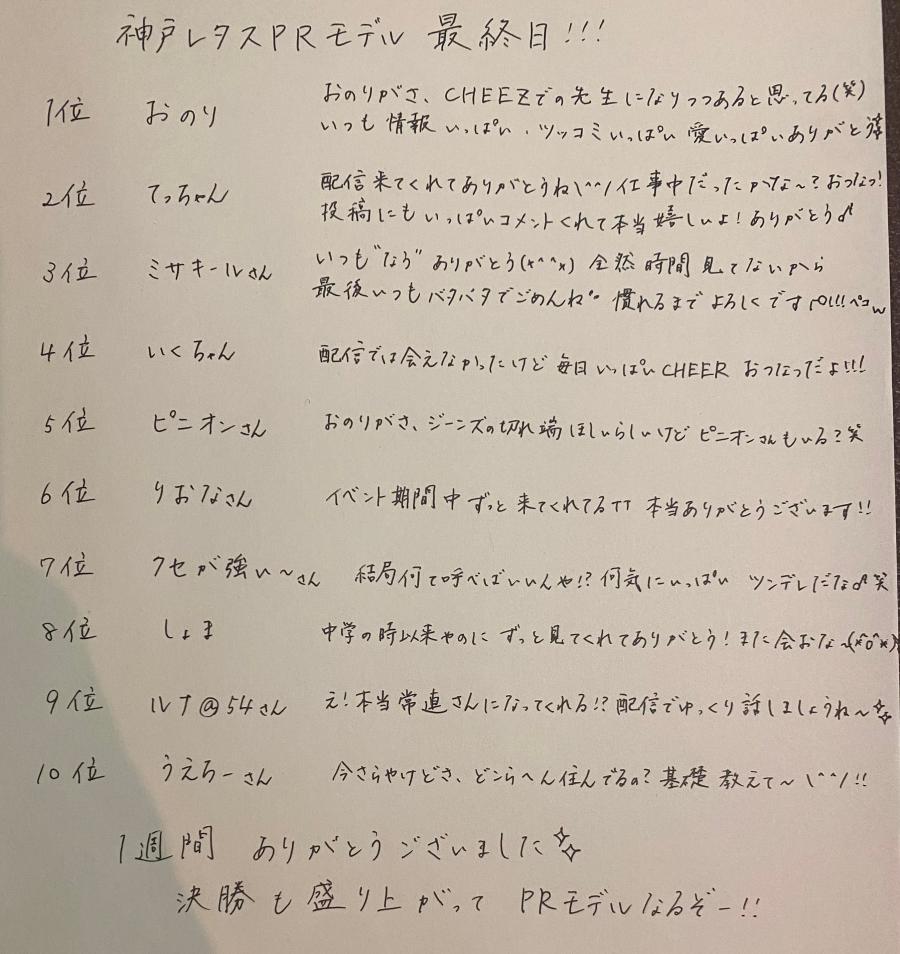 神戸レタスPRモデル 最終日!!!
1位 おのり おのりがさ、CHEEZでの先生になりつつあると思ってる(笑)
いつも 情報 いっぱい、ツッコミいっぱい 愛いっぱいありがとう
2位 てっちゃん 配信来てくれてありがとうね\^^/仕事中だったかな~?おつなっ!
投稿にもいっぱいコメントくれて本当嬉しいよ!ありがとう♂
3位 ミサキールさん いつも"なう"ありがとう(*^^*) 全然時間見てないから
最後いつもバタバタでごめんね 慣れるまでよろしくです ペコw
4位 いくちゃん 配信では会えなかったけど 毎日いっぱいCHEER おつなっだよ!!!
5位 ピニオンさん おのりがさ、ジーンズの切れ端ほしいらしいけど ピニオンさんもいる?笑
6位 りおなさん イベント期間中 ずっと来てくれてるTT 本当ありがとうございます!!
7位 クセが強い~さん 結局何て呼べばいいんや!? 何気にいっぱい ツンデレだな♂笑
8位 しょま 中学の時以来やのに ずっと見てくれてありがとう!また会おな~(*^o^*)
9位 ルナ@54さん え!本当常連さんになってくれる!?配信でゆっくり話しましょうね~✨
10位 うえろーさん 今さらやけどさ、どこらへん住んでるの?基礎 教えて~ \^^/!!
1週間 ありがとうございました✨
決勝も盛り上がって PRモデルなるぞー!!